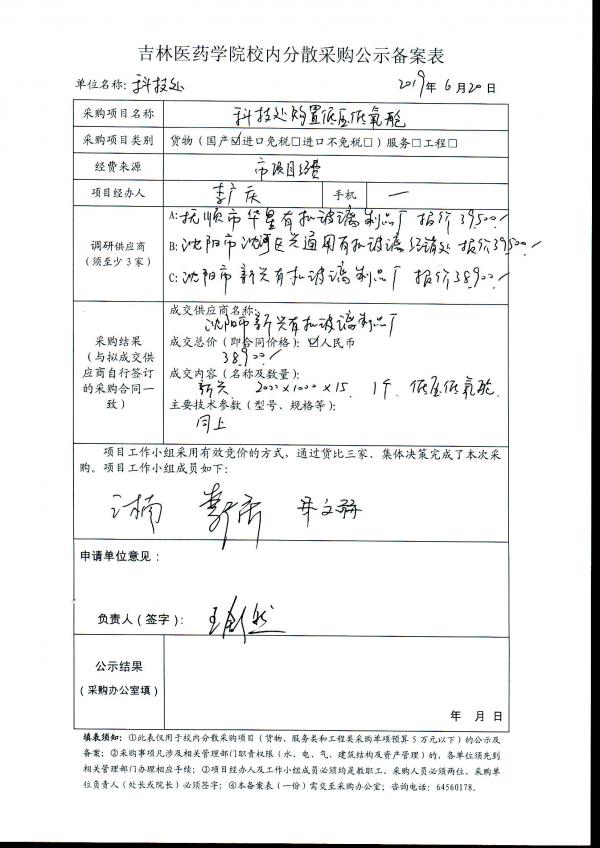 吉林医药学院校内分散采购公示备案表
单位名称: 科技处 2019年6月20日
采购项目名称 科技处购置低压低氧舱
采购项目类别 货物（国产☑进口免税□进口不免税□）服务□工程□
经费来源 市项目经费
项目经办人 李广庆 手机 —
调研供应商
（须至少3家）
A: 抚顺市华星有机玻璃制品厂 报价39500./
B: 沈阳市沈河区兴通用有机玻璃经销处 报价39500./
C: 沈阳市新兴有机玻璃制品厂 报价38900./
采购结果
（与拟成交供
应商自行签订
的采购合同一
致）
成交供应商名称:
沈阳市新兴有机玻璃制品厂
成交总价（即合同价格）: ☑人民币
38900./
成交内容（名称及数量）:
新兴. 2000×1000×15. 1个. 低压低氧舱.
主要技术参数（型号、规格等）:
同上
项目工作小组采用有效竞价的方式，通过货比三家、集体决策完成了本次采
购。项目工作小组成员如下:
申请单位意见:
负责人（签字）:
公示结果
（采购办公室填）
年 月 日
填表须知: ①此表仅用于校内分散采购项目（货物、服务类和工程类采购单项预算5万元以下）的公示及
备案; ②采购事项凡涉及相关管理部门职责权限（水、电、气、建筑结构及资产管理）的, 各单位须先到
相关管理部门办理相应手续; ③项目经办人及工作小组成员必须均是教职工、采购人员必须两位、采购单
位负责人（处长或院长）必须签字; ④本备案表（一份）需交至采购办公室; 咨询电话: 64560178.